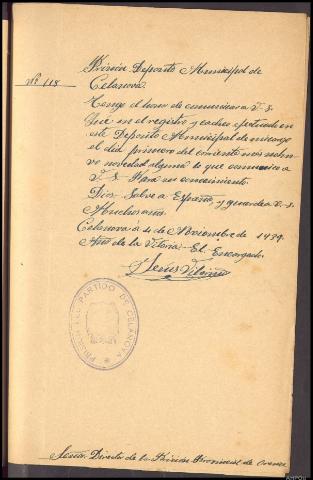 Prisión Deposito Municipal de
Nº 118
Celanova.
Tengo el honor de comunicar a V.S.
Que en el registro y cacheo efectuado en
este Deposito Municipal de mi cargo
el dia primero del corriente no se
novedad alguna lo que comunico a
V.S. Para su conocimiento.
Dios Salve a España, y guarde a V.S.
Muchos años
Celanova a 4 de Noviembre de 1939.
Año de la Vitoria = El Encargado.
Jesús
PRISION DEL PARTIDO DE CELANOVA
Señor Director de la Prisión Provincial de Orense